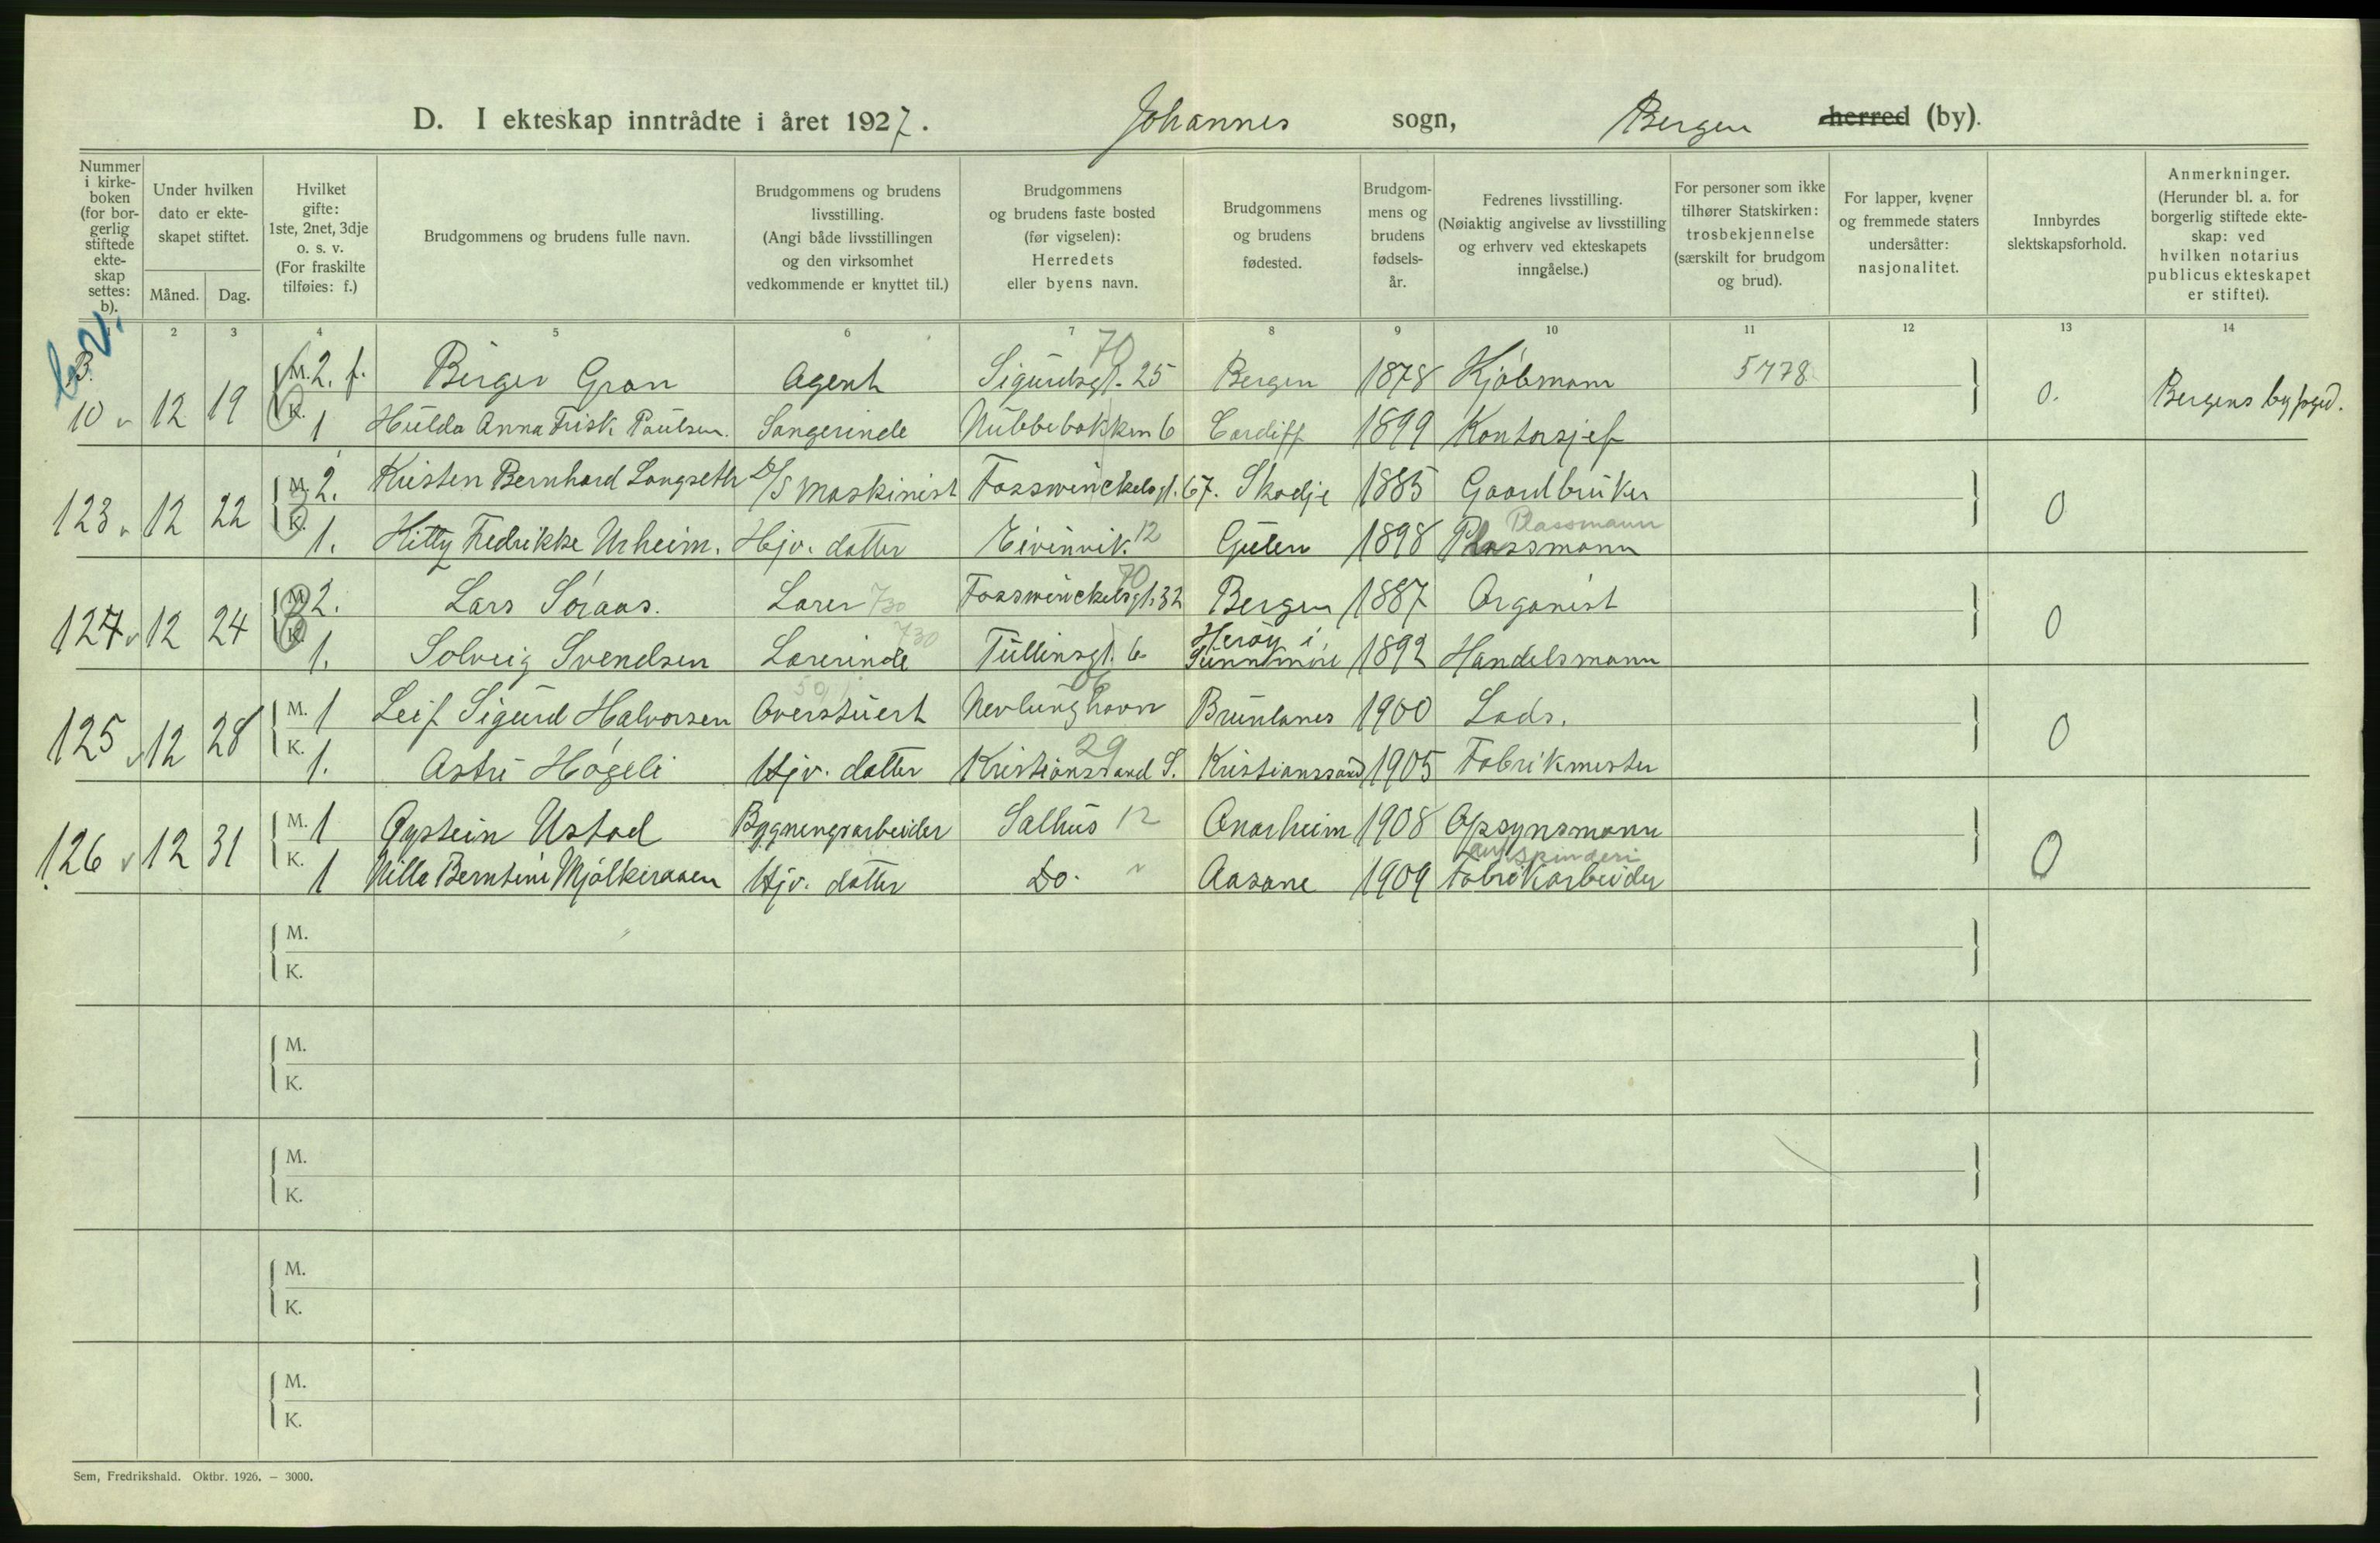 D. I ekteskap inntrådte i året 1927. Johannes sogn, Bergen herred (by).
Nummer i kirke-boken (for bor-gerlig stiftede ekte-skap settes: b).
Under hvilken dato er ekte-skapet stiftet.
Måned. Dag.
Hvilket gifte: 1ste, 2net, 3dje o. s. v. (For fraskilte tilføies: f.)
Brudgommens og brudens fulle navn.
Brudgommens og brudens livsstilling. (Angi både livsstillingen og den virksomhet vedkommende er knyttet til.)
Brudgommens og brudens faste bosted (før vigselen): Herredets eller byens navn.
Brudgommens og brudens fødested.
Brudgom-mens og brudens fødsels-år.
Fedrenes livsstilling. (Nøiaktig angivelse av livsstilling og erhverv ved ekteskapets inngåelse.)
For personer som ikke tilhører Statskirken: trosbekjennelse (særskilt for brudgom og brud).
For lapper, kvener og fremmede staters undersåtter: nasjonalitet.
Innbyrdes slektskapsforhold.
Anmerkninger. (Herunder bl. a. for borgerlig stiftede ekte-skap: ved hvilken notarius publicus ekteskapet er stiftet).
1 2 3 4 5 6 7 8 9 10 11 12 13 14
B. 10 12 19 M. 2. f. Birger Gran Agent Sigurdsgt. 25 70 Bergen 1878 Kjøbmann 5778 0. Bergens byfogd.
K. 1 Hulda Anna Frisk Paulsen. Sangerinde Nubbebakken 6 Cardiff 1899 Kontorsjef
123 12 22 M. 2. Kristen Bernhard Langseth D/S Maskinist Fosswinckelsgt. 67. Skodje 1885 Gaardbruker 0
K. 1. Kitty Fredrikke Urheim. Hjv. datter Eivinvik. 12 Gulen 1898 Plassmann Plassmann
124 12 24 M. 2. Lars Söraas. Lærer 730 Fosswinckelsgt. 32 70 Bergen 1887 Organist 0
K. 1. Solveig Svendsen Lærerinde 730 Tullinsgt. 6 Heröy i Sunnmöre 1892 Handelsmann
125 12 28 M. 1 Leif Sigurd Halvorsen Overstuert Nevlunghavn Brunlanes 1900 Lods. 0
K. 1. Astri Högeli Hjv. datter Kristiansand S. 29 Kristianssand 1905 Fabrikmester
126 12 31 M. 1 Øystein Ustad Bygningsarbeider Salhus 12 Onarheim 1908 Opsynsmann 0
K. 1 Nilla Berntine Mjölkeraaen Hjv. datter Do. Aasane 1909 Fabrikarbeider
M.
K.
M.
K.
M.
K.
M.
K.
M.
K.
Sem, Fredrikshald. Oktbr. 1926. – 3000.